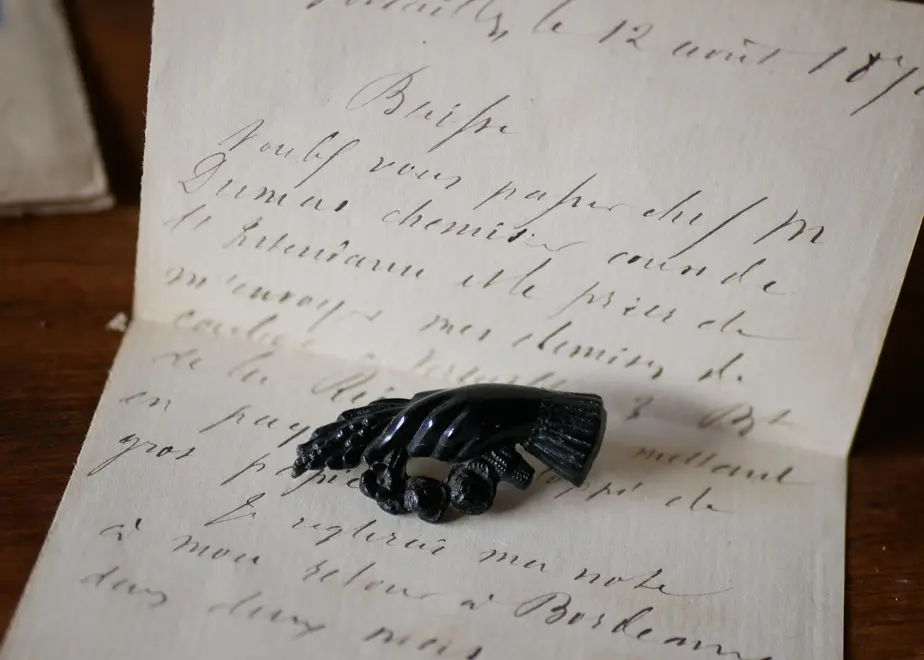 Versailles, le 12 août 187
Baisse
Voulez vous passer chez M
Dumas chemisier cours de
l'Intendance et le prier de
m'envoyer mes chemises de
à Versailles
de la Rei
en paq mettant
gros pap de
Je reglerai ma note
à mon retour à Bordeaux
dans deux mois